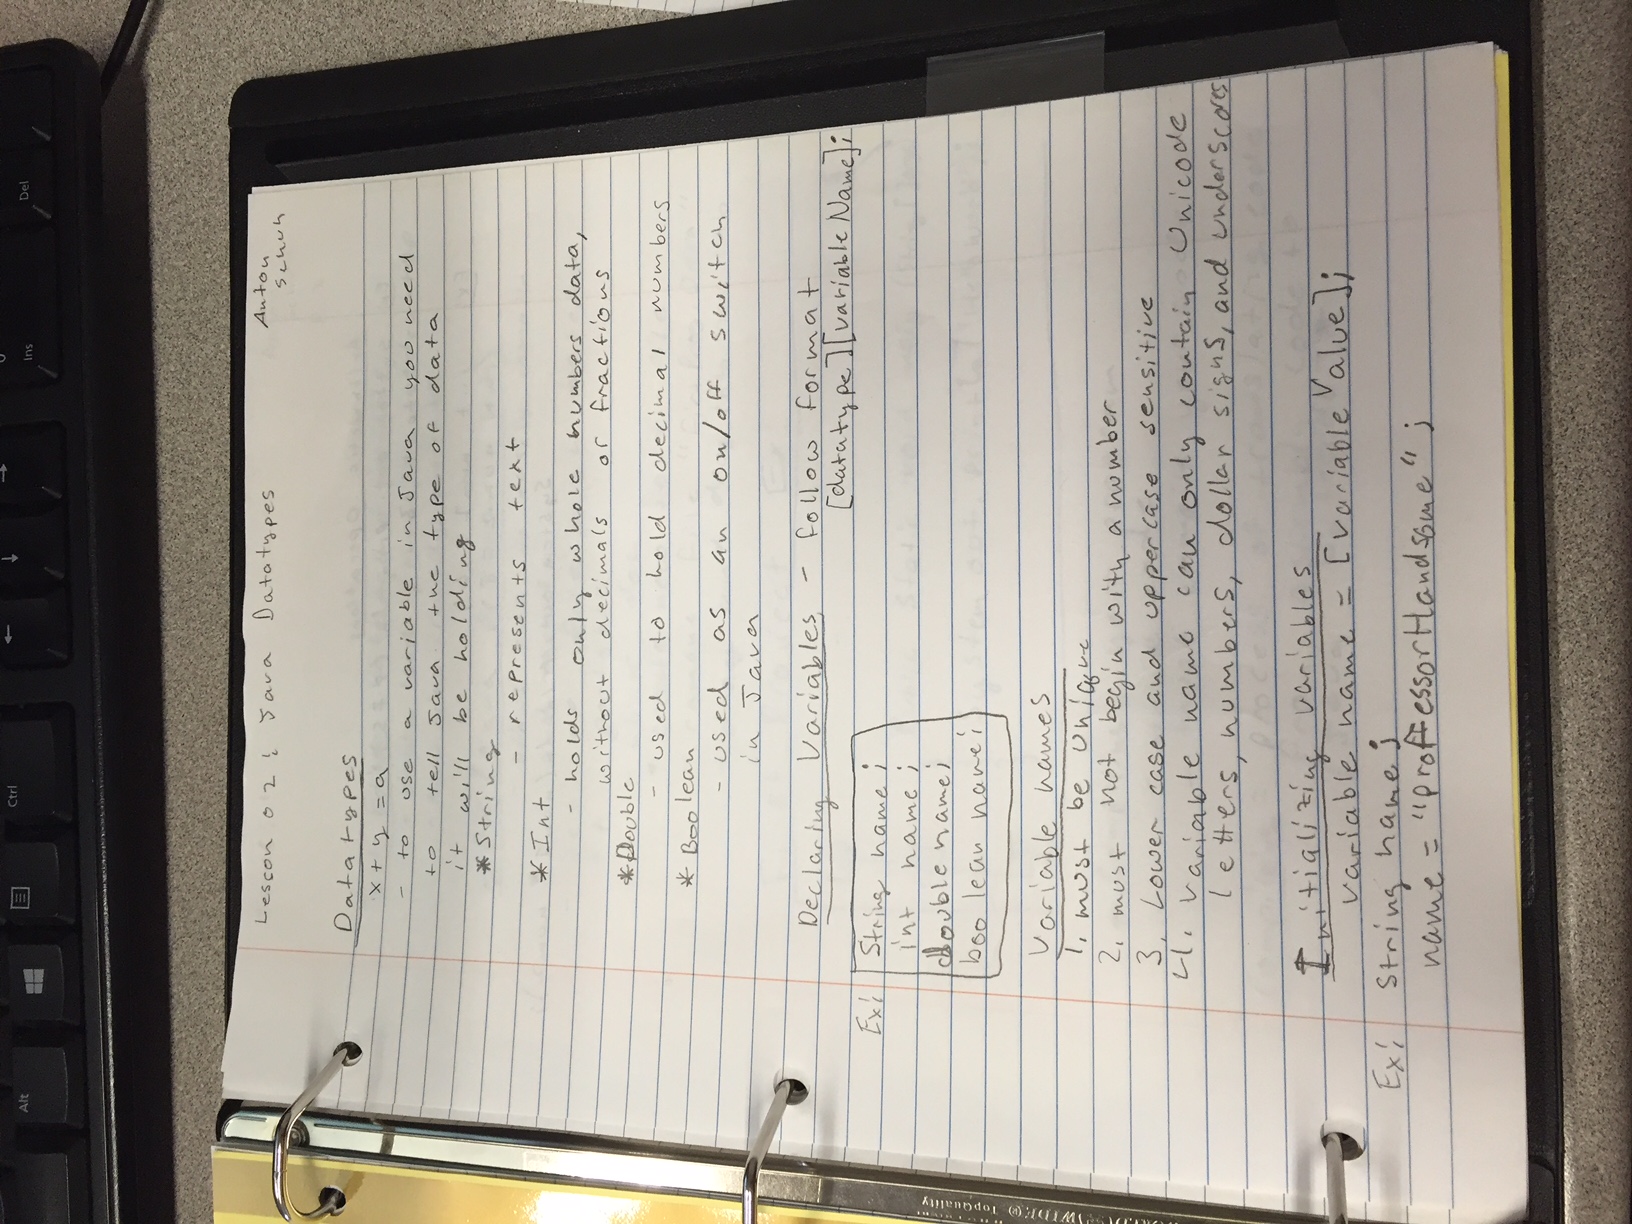 Alt
Ctrl
Ins
Del
Lesson 02: Java Datatypes
Anton
Schuh
Datatypes
x + y = a
- to use a variable in Java you need
to tell Java the type of data
it will be holding
* String
- represents text
* Int
- holds only whole numbers data,
without decimals or fractions
* Double
- used to hold decimal numbers
* Boolean
- used as an on/off switch
in Java
Declaring Variables - follow format
[datatype][variable Name];
Ex: String name;
int name;
double name;
boolean name;
Variable names
1. must be unique
2. must not begin with a number
3. Lower case and uppercase sensitive
4. variable name can only contain Unicode
letters, numbers, dollar signs, and underscores
Initializing variables
variable name = [variable Value];
Ex: String name;
name = "ProffessorHandsome";
TopQuality